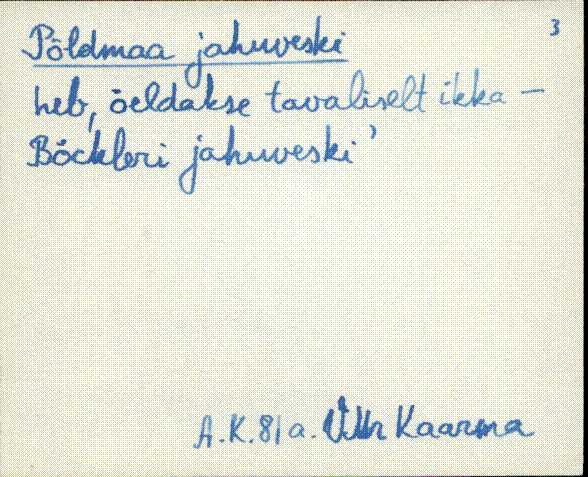 3
Põldmaa jahuveski
heb, öeldakse tavaliselt ikka –
Böckleri jahuveski’
A.K. 81 a. Kaarma